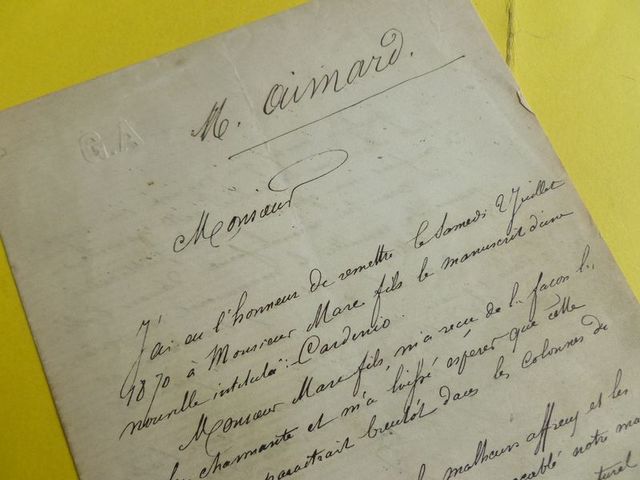 G.A
M. Aimard.
Monsieur
J'ai eu l'honneur de remettre le Samedi 2 Juillet
1870 à Monsieur Marc fils le manuscrit d'une
nouvelle intitulée: Cardenio.
Monsieur Marc fils, m'a reçu de la façon la
plus charmante et m'a laissé espérer que cette
paraîtrait bientôt dans les colonnes de
malheurs affreux et les
accablé notre